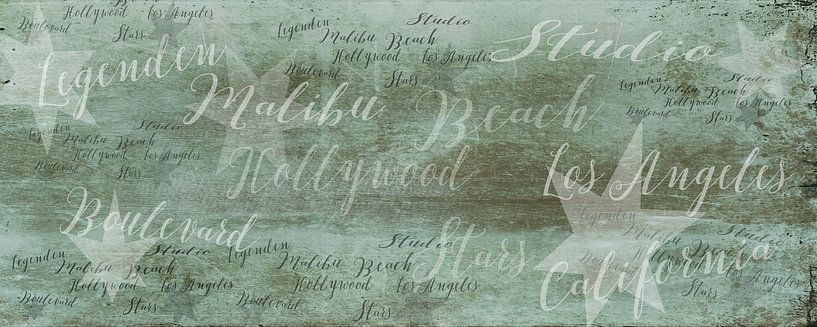 Legenden Studio
Malibu Beach
Hollywood Los Angeles
Boulevard
Stars
California
Boulevard Hollywood Los Angeles
Stars
Legenden Studio
Malibu Beach
Hollywood Los Angeles
Boulevard
Stars
Legenden
Malibu
Hollywood Los Angeles
Boulevard
Stars
Legenden Studio
Malibu Beach
Hollywood Los Angeles
Boulevard
Stars
Legenden Studio
Malibu Beach
Hollywood Los Angeles
Boulevard
Stars
Legenden Studio
Malibu Beach
Hollywood Los Angeles
Boulevard
Stars
Legenden
Malibu
Hollywood
Boulevard
Stars